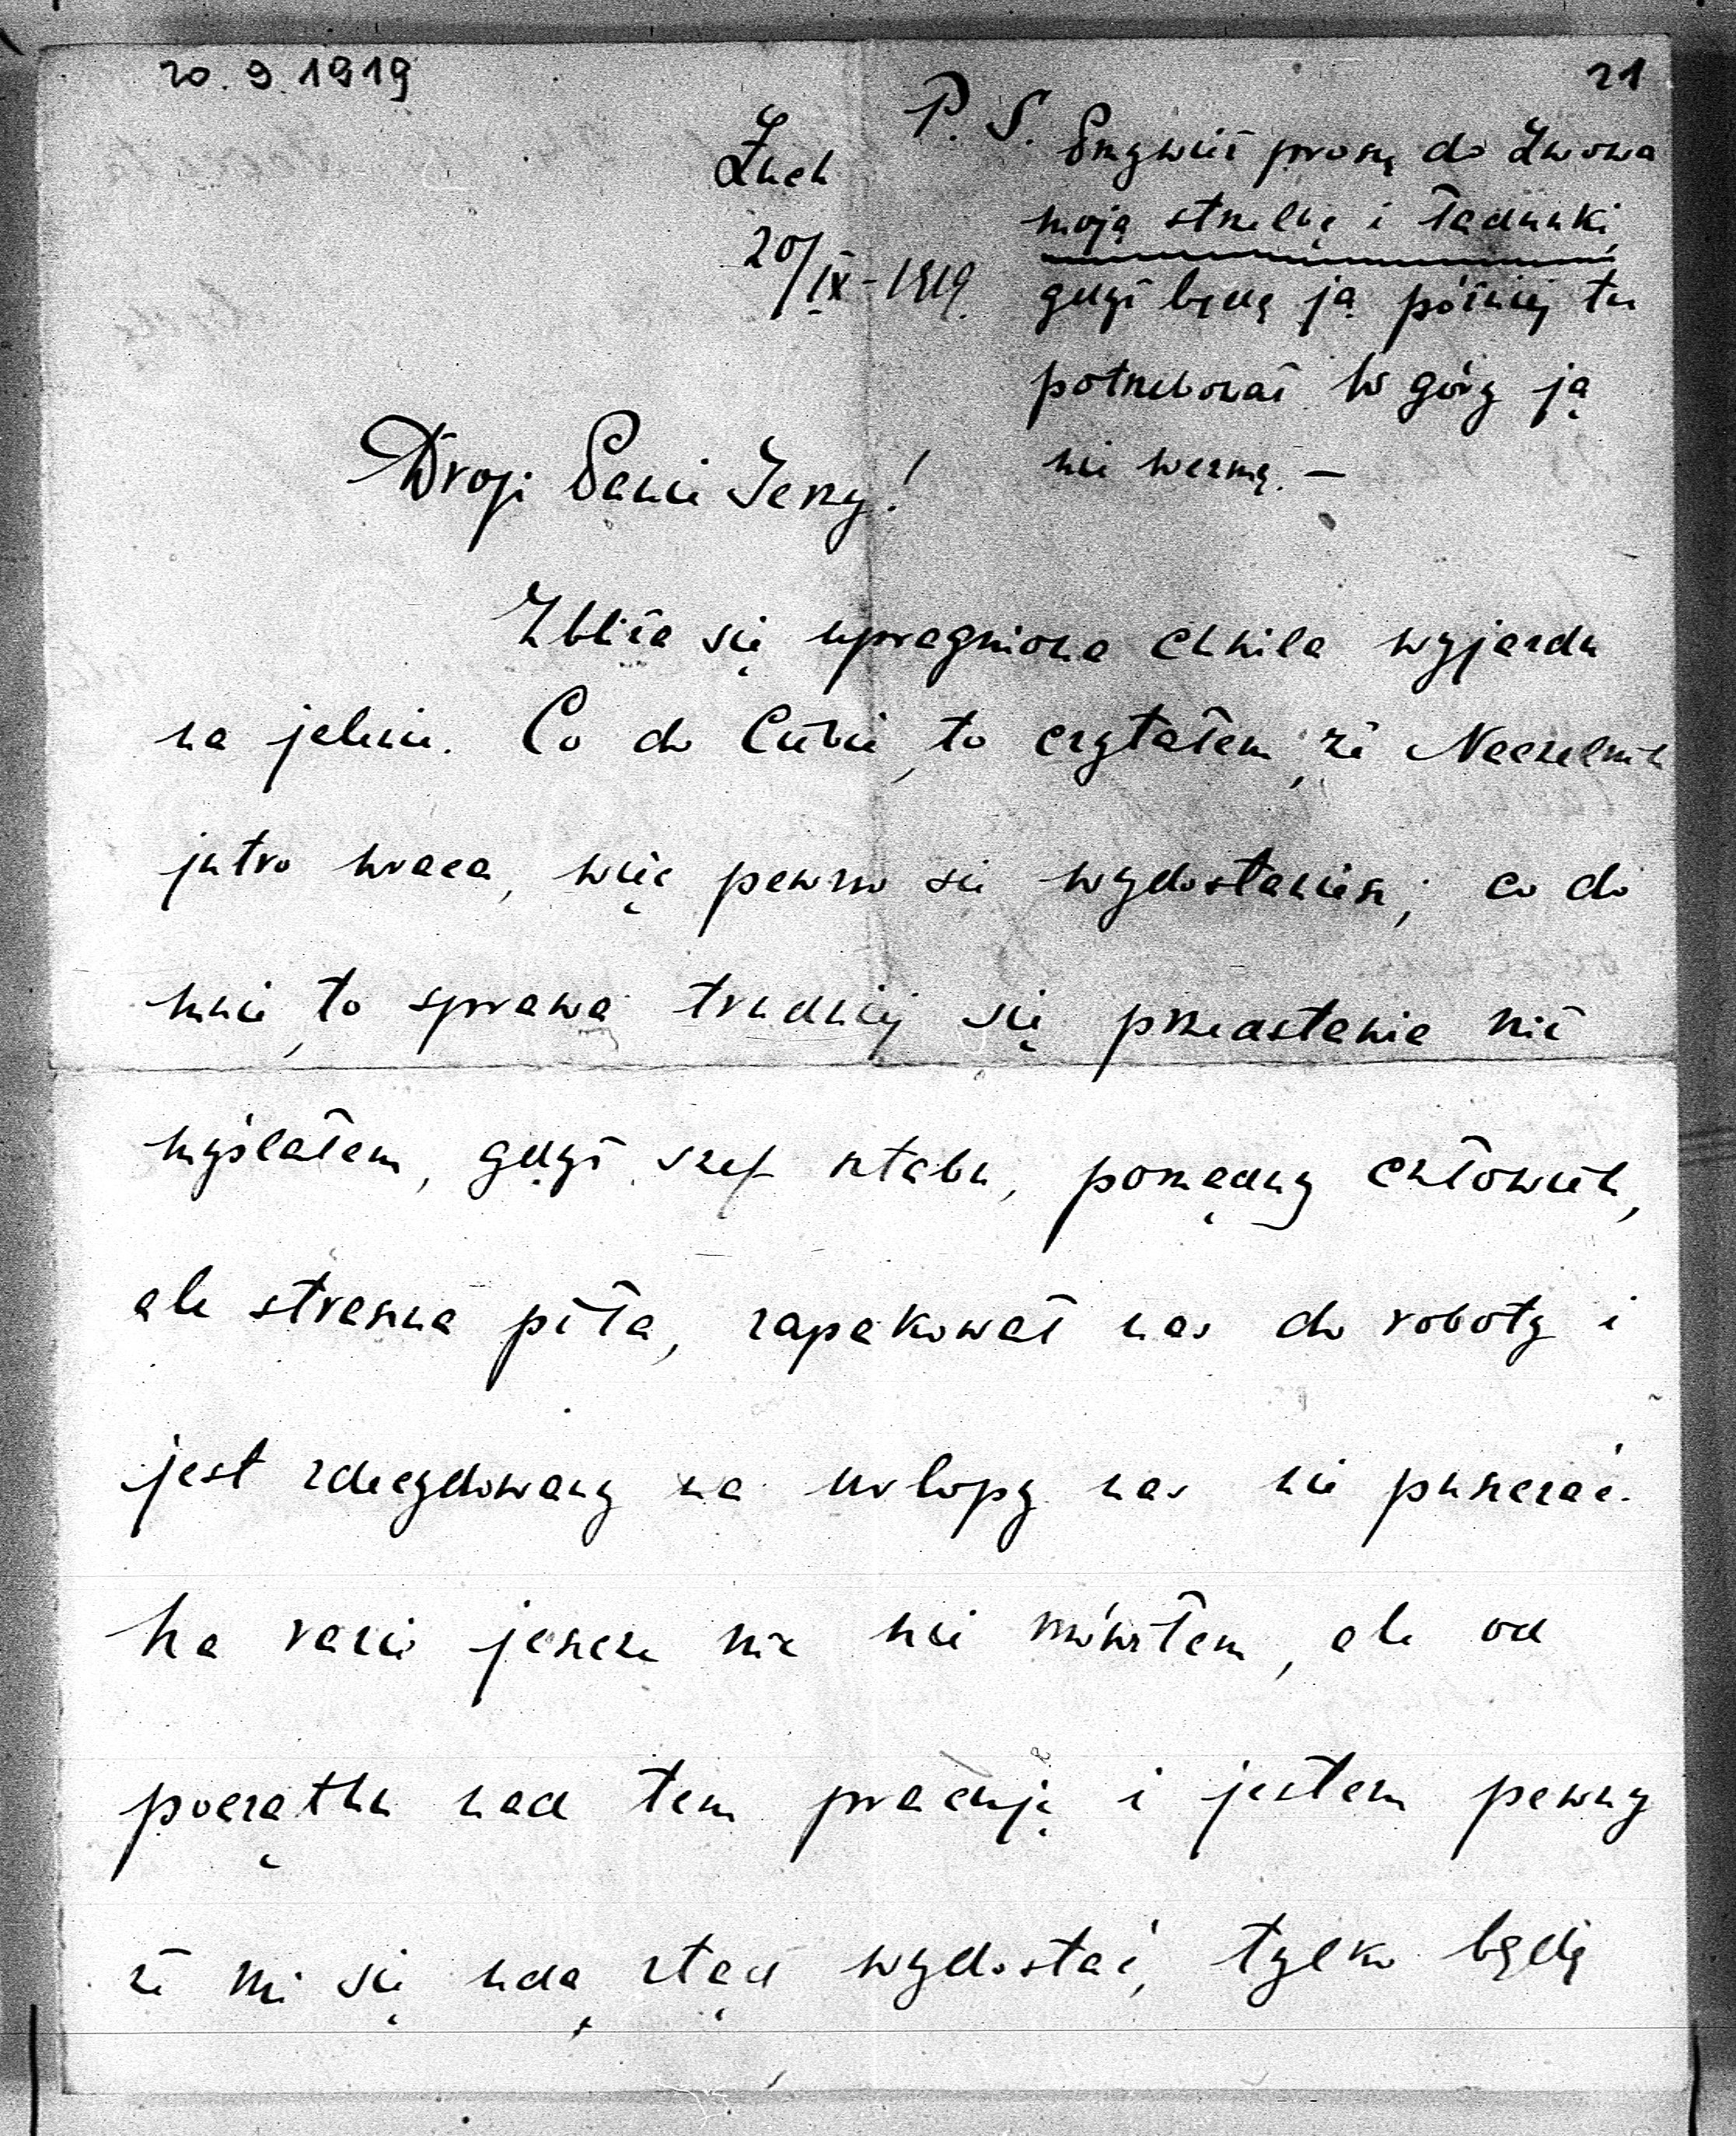 20.9.1919
21
Łuck
20/IX-1919.
P. S. Przywieź proszę do Lwowa
moją strzelbę i ładunki,
gdyż będę ją później tu
potrzebował. W góry ją
nie wezmę. —
Drogi Panie Jerzy!
Zbliża się upragniona chwila wyjazdu
na jelenie. Co do Ciebie, to czytałem, że Naczelnik
jutro wraca, więc pewno się wydostaniesz; co do
mnie, to sprawa trudniej się przedstawia niż
myślałem, gdyż szef sztabu, porządny człowiek,
ale straszna piła, zapakował nas do roboty i
jest zdecydowany na urlopy nas nie puszczać.
Na razie jeszcze nic nie mówiłem, ale od
początku nad tem pracuję i jestem pewny
że mi się uda ztąd wydostać, tylko będę